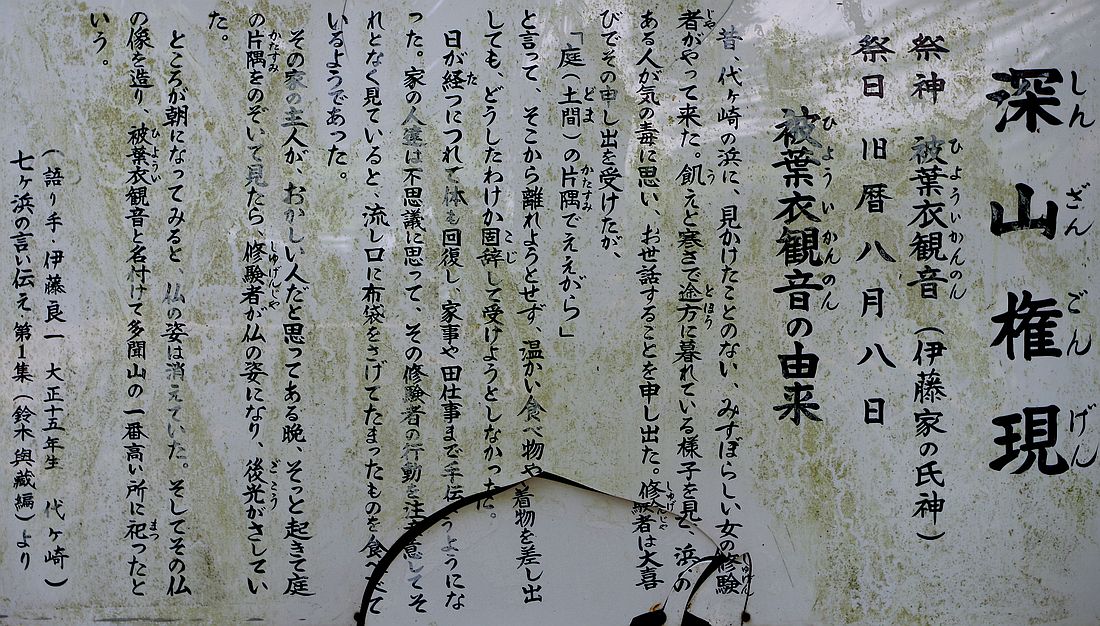 深山権現
祭神 被葉衣観音(伊藤家の氏神)
祭日 旧暦八月八日
被葉衣観音の由来
昔、代ヶ崎の浜に、見かけたことのない、みすぼらしい女の修験
者がやって来た。飢えと寒さで途方に暮れている様子を見て、浜の
ある人が気の毒に思い、お世話することを申し出た。修験者は大喜
びでその申し出を受けたが、
「庭(土間)の片隅でええがら」
と言って、そこから離れようとせず、温かい食べ物や着物を差し出
しても、どうしたわけか固辞して受けようとしなかった。
日が経つにつれて体も回復し、家事や田仕事まで手伝うようにな
った。家の人達は不思議に思って、その修験者の行動を注意してそ
れとなく見ていると、流し口に布袋をさげてたまったものを食べて
いるようであった。
その家の主人が、おかしい人だと思ってある晩、そっと起きて庭
の片隅をのぞいて見たら、修験者が仏の姿になり、後光がさしてい
た。
ところが朝になってみると、仏の姿は消えていた。そしてその仏
の像を造り、被葉衣観音と名付けて多聞山の一番高い所に祀ったと
いう。
(語り手・伊藤良一 大正十五年生 代ヶ崎)
七ヶ浜の言い伝え・第1集(鈴木與蔵編)より